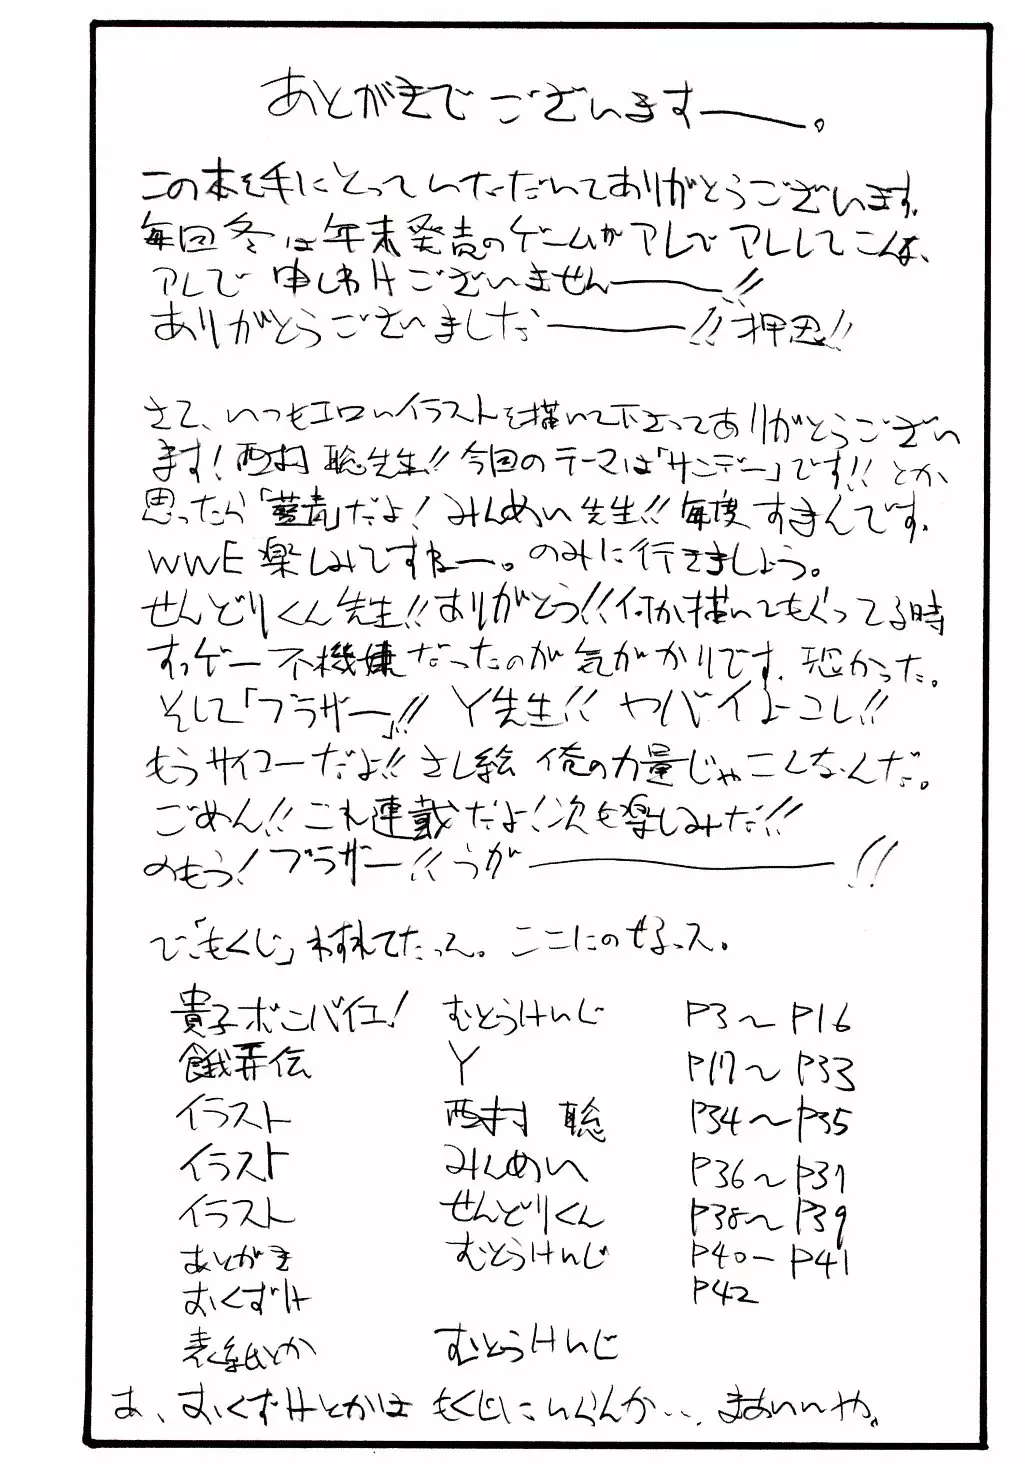 あとがきでございますー。
この本を手にとっていただいてありがとうございます。
毎回冬は年末発売のゲームがアレでアレしてこんな、
アレで申しわけございませんー!!
ありがとうございましたー!!押忍!!
さて、いつもエロいイラストを描いて下さってありがとうござい
ます!西村聡先生!!今回のテーマは「サンデー」です!!とか
思ったら「藍青」だよ!みんめい先生!!毎度すまんです。
WWE楽しみですねー。のみに行きましょう。
せんどりくん先生!!ありがとう!!何か描いてもぐってる時
すっゲー不機嫌だったのが気がかりです。恐かった。
そして「ブラザー」!!Y先生!!ヤバイよコレ!!
もうサイコーだよ!!さし絵俺の力量じゃこんなんだ。
ごめん!!これ連載だよ!次も楽しみだ!!
のもう!ブラザー!!うがー!!
で「もくじ」わすれてたっス。ここにのせるっス。
貴子ボンバイエ! むとうけいじ P3〜P16
餓弄伝 Y P17〜P33
イラスト 西村 聡 P34〜P35
イラスト みんめい P36〜P37
イラスト せんどりくん P38〜P39
あとがき むとうけいじ P40ーP41
おくずけ P42
表紙とか むとうけいじ
あ、おくずけとかはもくじにいらんか… まあいいや。